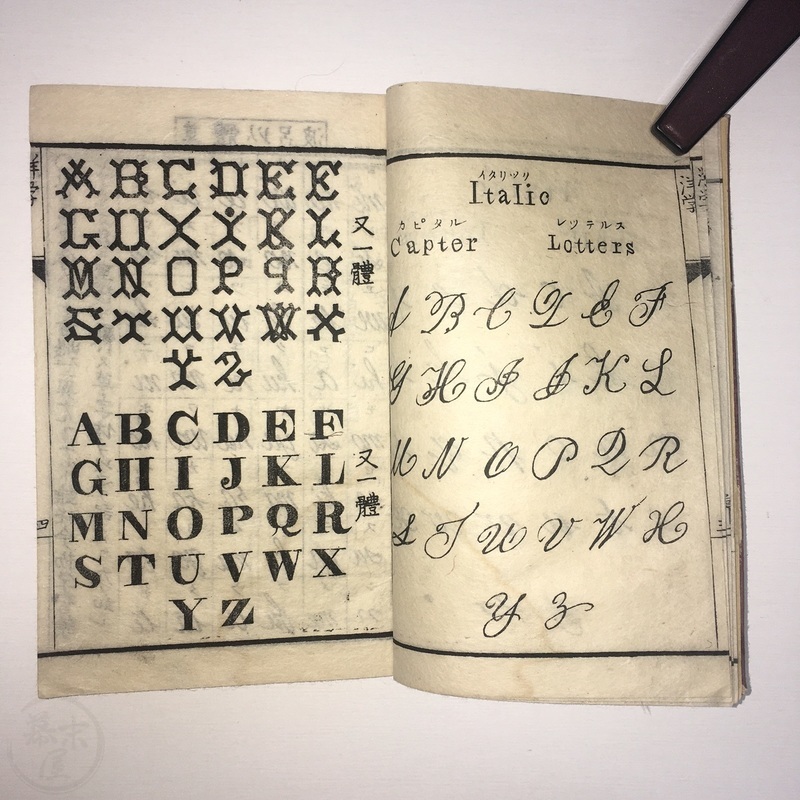 イタリツク
Italic
カピタル レツテルス
Capter Lotters
A B C D E F
G H I J K L
M N O P Q R
S T U V W X
Y Z
又一體
A B C D E F
G H I J K L
M N O P Q R
S T U V W X
Y Z
又一體
A B C D E F
G H I J K L
M N O P Q R
S T U V W X
Y Z
四